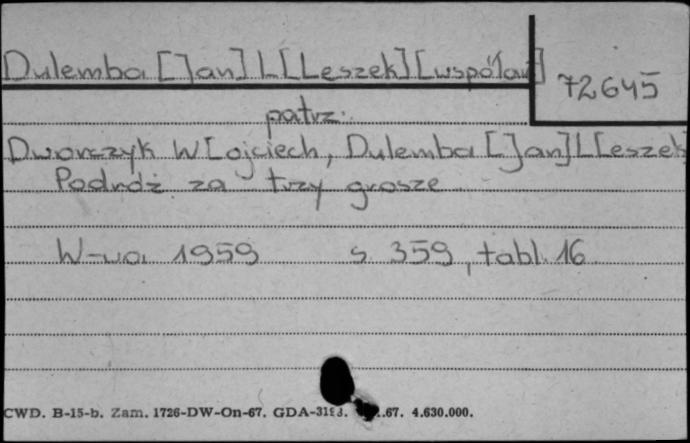 Dulemba [J]an] L[Leszek] [współau]
72645
patrz:
Dworczyk W[ojciech, Dulemba [J]an] L[eszek
Podróż za trzy grosze
W-wa 1959 s. 359, tabl. 16
CWD. B-15-b. Zam. 1726-DW-On-67. GDA- .67. 4.630.000.